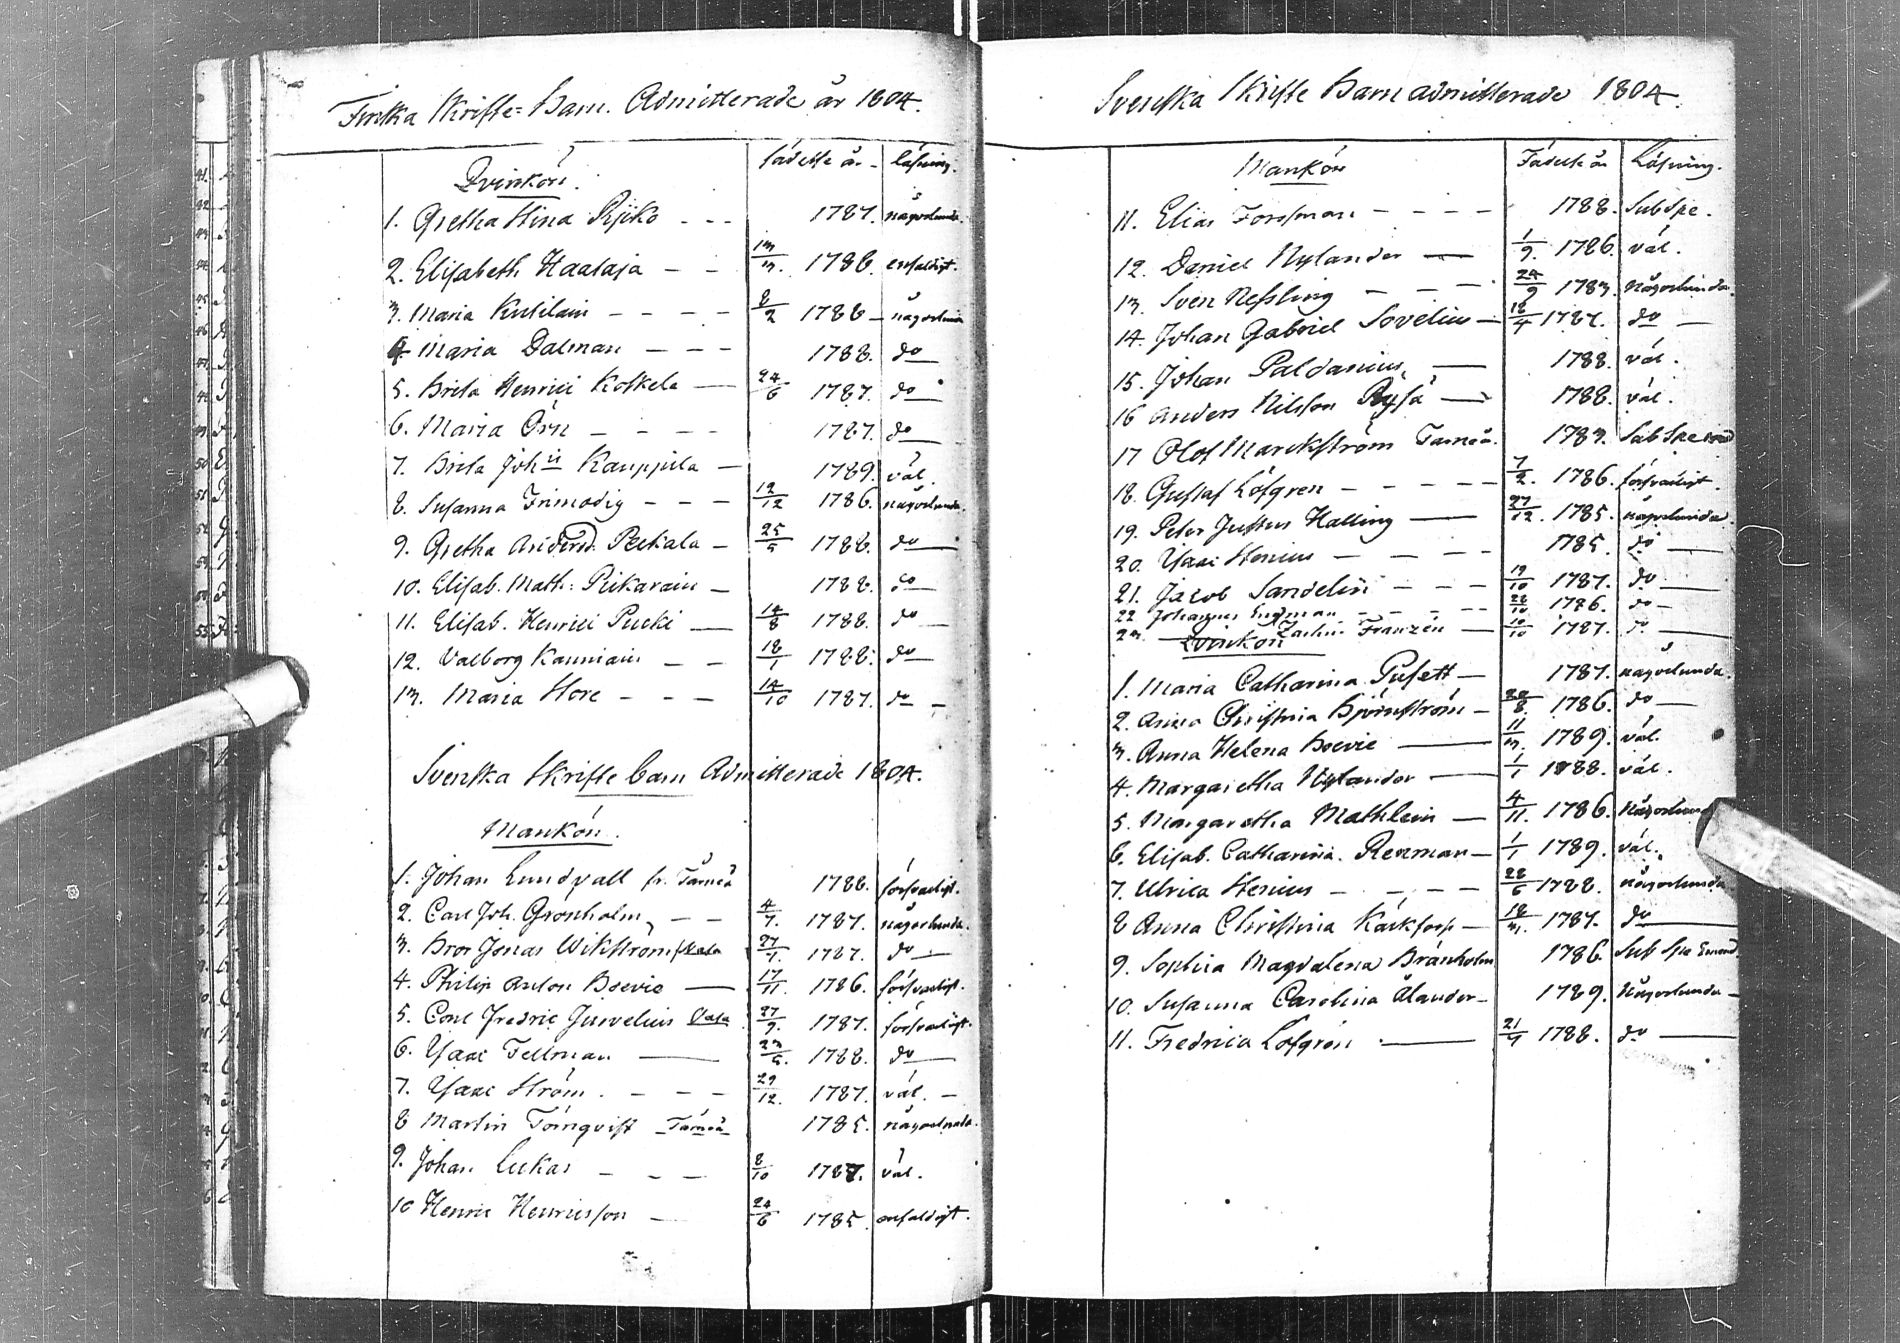 Finska Skrifte-Barn. Admitterade år 1804.
Qvinkön.
födelse år - läsning.
1. Gretha Stina Pijko - - - 1787. någorlunda.
2. Elisabeth Haataja - - 13/3. 1786. enfaldigt.
3. Maria Kutilain - - - - 8/2 1786 - någorlunda
4 Maria Dalman - - - 1788. do
5. Brita Henrici Koskela - 24/6 1787. do
6. Maria Örn - - - - 1787. do
7. Brita Johis Kauppila - 1789. väl.
8. Susanna Frimodig - - - 12/12 1786. någorlunda.
9. Gretha Anders. Peekala - 25/5 1788. do
10. Elisab. Math: Pikarain - 1788. do
11. Elisab. Henrici Pucki - 14/8 1788. do
12. Valborg Kauniain - - 18/1 1788. do
13. Maria Hore - - - 14/10 1787. do -
Svenska Skrifte barn Admitterade 1804.
Mankön.
1. Johan Lundvall fr. Torneå 1788. försvarligt.
2. Carl Joh. Grönholm - - 4/7. 1787. någorlunda.
3. Bror Jonas Wikström 27/7. 1787. do -
4. Philip Anton Boevie - 17/11. 1786. försvarligt.
5. Conl Fredric Juvelius Vasa 27/9. 1787. försvarligt.
6. Isaac Fellman - 23/5. 1788. do
7. Isaac Ström. - - - 29/12. 1787. väl. -
8 Martin Törnqvist Torneå 1785. någorlunda.
9. Johan Lukar - - - 8/10 1787. väl.
10 Henric Henricsson - 24/6 1785. enfaldigt.
Svenska Skrifte Barn admitterade 1804.
Mankön
Födelse år Läsning.
11. Elias Forssman - - - - 1788. Sub Spe.
12. Daniel Nylander - 1/9. 1786. väl.
13. Sven Nessling - - - 24/9 1783. någorlunda.
14. Johan Gabriel Sovelius - 18/4 1787. do -
15. Johan Paldanius - 1788. väl.
16 Anders Nilsson - 1788. väl.
17 Olof Marckström Torneå. 1783. Sub Spe
18. Gustaf Löfgren - - - - - 7/2. 1786. försvarligt.
19. Peter Justus Halling - 27/12. 1785. någorlunda.
20. Isaac Stenius - - - - 1785. do
21. Jacob Sandelin - - - 19/10 1787. do
22 Johannes Engman - - - - 28/10 1786. do -
23. Zachr. Franzén - 10/10 1787. do
Qvinkön
1. Maria Catharina Pusett - 1787. någorlunda.
2. Anna Christina Björnström - 28/8. 1786. do
3. Anna Helena Boevie - 11/3. 1789. väl.
4. Margaretha Nylander - 1/1 1788. väl.
5. Margaretha Mathlein - 4/11. 1786. någorlunda
6. Elisab. Catharina. Renman - 1/1 1789. väl.
7. Ulrica Stenius - - - - 28/6 1788. någorlunda
8 Anna Christina Karkfors - 18/3. 1787. do
9. Sophia Magdalena Bränholm 1786. Sub Spe Emend.
10. Susanna Carolina Ålander - 1789. Någorlunda -
11. Fredrica Löfgren - 21/7 1788. do